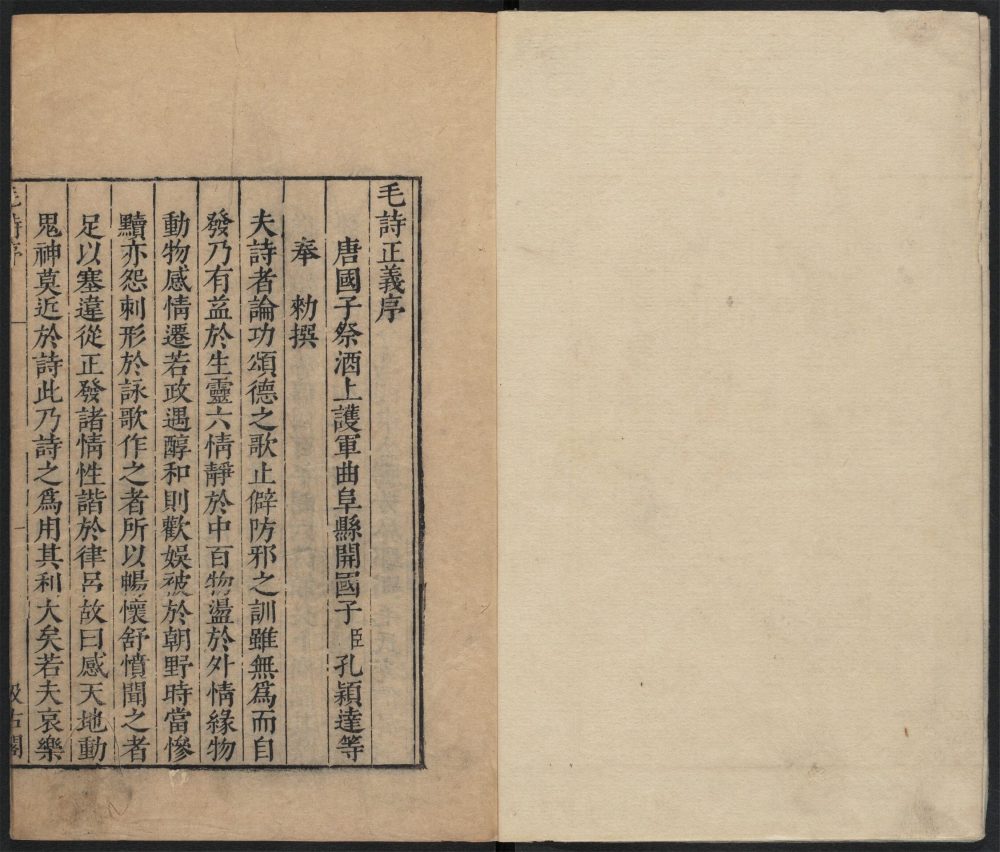 毛詩正義序
唐國子祭酒上護軍曲阜縣開國子臣孔穎達等
奉 勑撰
夫詩者論功頌德之歌止僻防邪之訓雖無爲而自
發乃有益於生靈六情靜於中百物盪於外情緣物
動物感情遷若政遇醇和則歡娛被於朝野時當慘
黷亦怨刺形於詠歌作之者所以暢懷舒憤聞之者
足以塞違從正發諸情性諧於律呂故曰感天地動
鬼神莫近於詩此乃詩之爲用其利大矣若夫哀樂
毛詩序 一 汲古閣